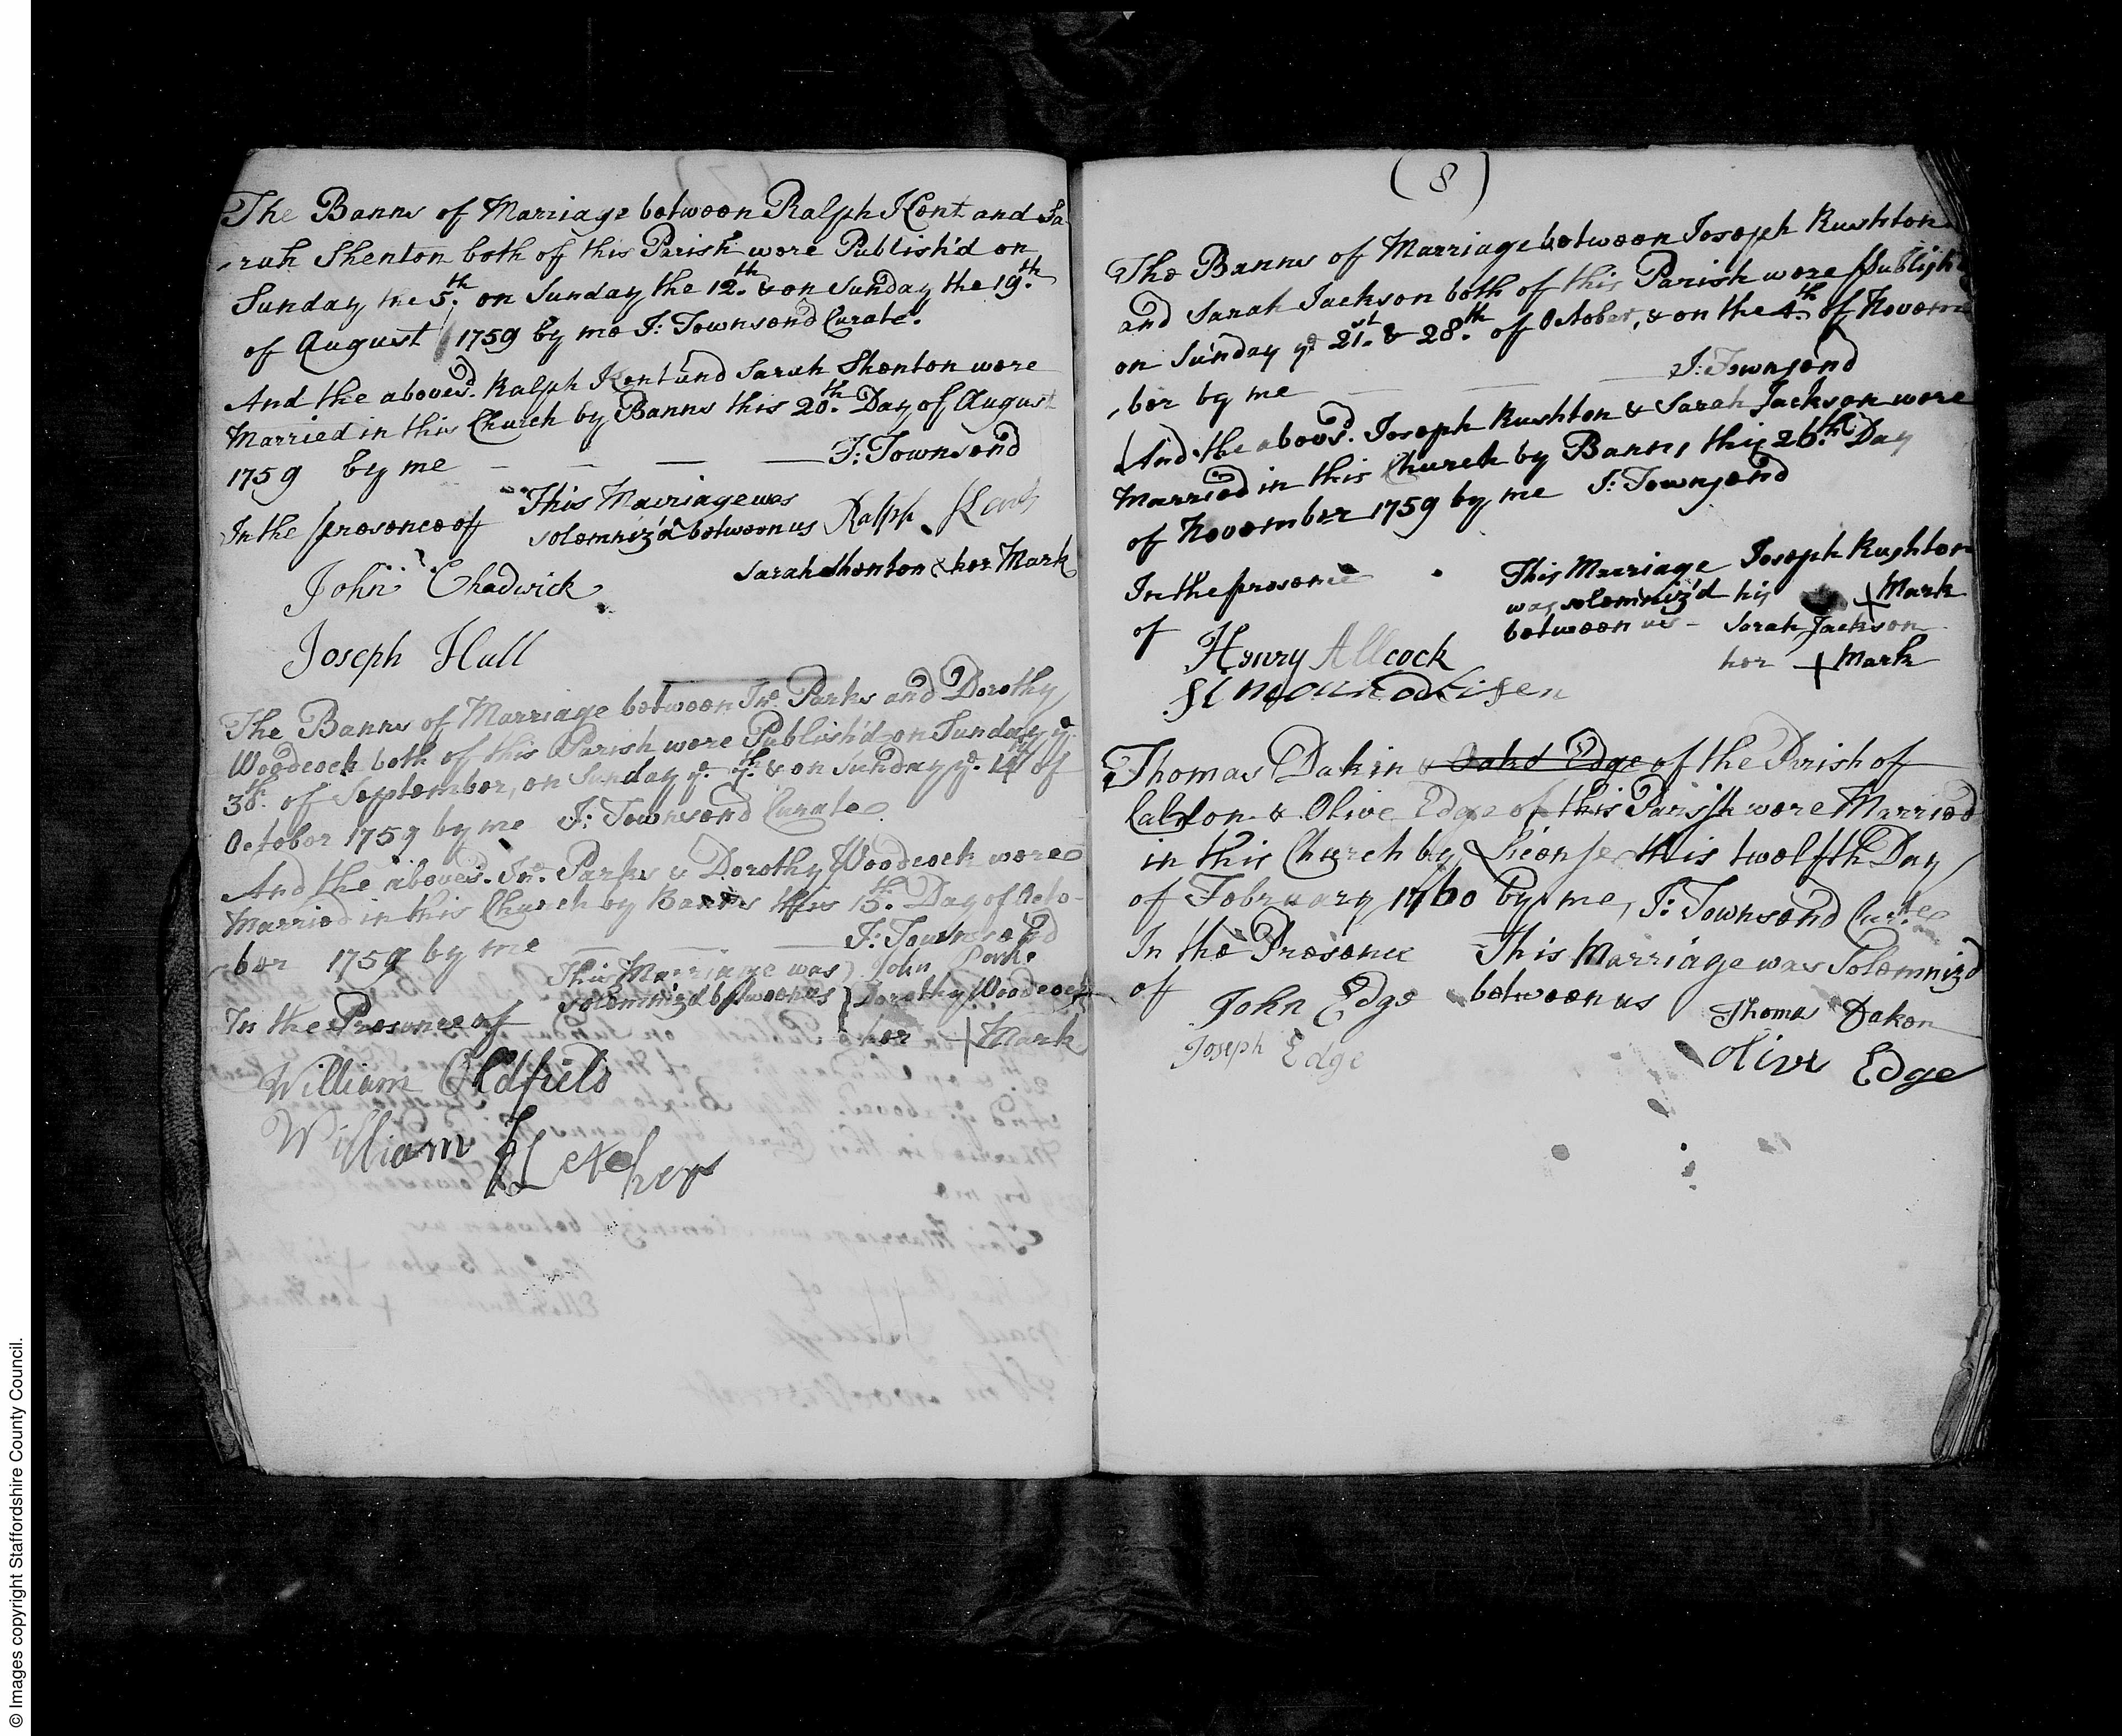 The Banns of Marriage between Ralph Kent and Sa
-rah Shenton both of this Parish were Publish'd on
Sunday the 5th. on Sunday the 12th. & on Sunday the 19th.
of August 1759 by me J: Townsend Curate.
And the abovesd. Ralph Kent and Sarah Shenton were
Married in this Church by Banns this 20th. Day of August
1759 by me — — — — J: Townsend
In the presence of This Marriage was
solemniz'd between us Ralph Kent
Sarah Shenton × her Mark
John Chadwick
Joseph Hall
The Banns of Marriage between Jno. Parks and Dorothy
Woodcock both of this Parish were Publish'd on Sunday ye.
30th. of September, on Sunday ye. 7th. & on Sunday ye. 14th of
October 1759 by me J: Townsend Curate
And the abovesd. Jno. Parks & Dorothy Woodcock were
Married in this Church by Banns this 15th. Day of Octo-
-ber 1759 by me — — — J: Townsend
This Marriage was John Parks
solemnized between us Dorothy Woodcock
In the Presence of her + Mark
William Oldfield
William Fletcher
(8)
The Banns of Marriage between Joseph Rushton
and Sarah Jackson both of this Parish were Publish'd
on Sunday ye 21st. & 28th. of October, & on the 4th of Novem
-ber by me — — — J: Townsend
And the abovesd. Joseph Rushton & Sarah Jackson were
Married in this Church by Banns this 26th. Day
of November 1759 by me J: Townsend
In the presence This Marriage Joseph Rushton
was solemniz'd his + Mark
of between us - Sarah Jackson
her + Mark
Henry Allcock
Thomas Dakin & Oake Edge of the Parish of
Calton & Olive Edge of this Parish were Married
in this Church by License this twelfth Day
of February 1760 by me, J: Townsend Curte
In the Presence This Marriage was Solemnizd
of between us
John Edge Thomas Dakon
Joseph Edge Olive Edge
© Images copyright Staffordshire County Council.